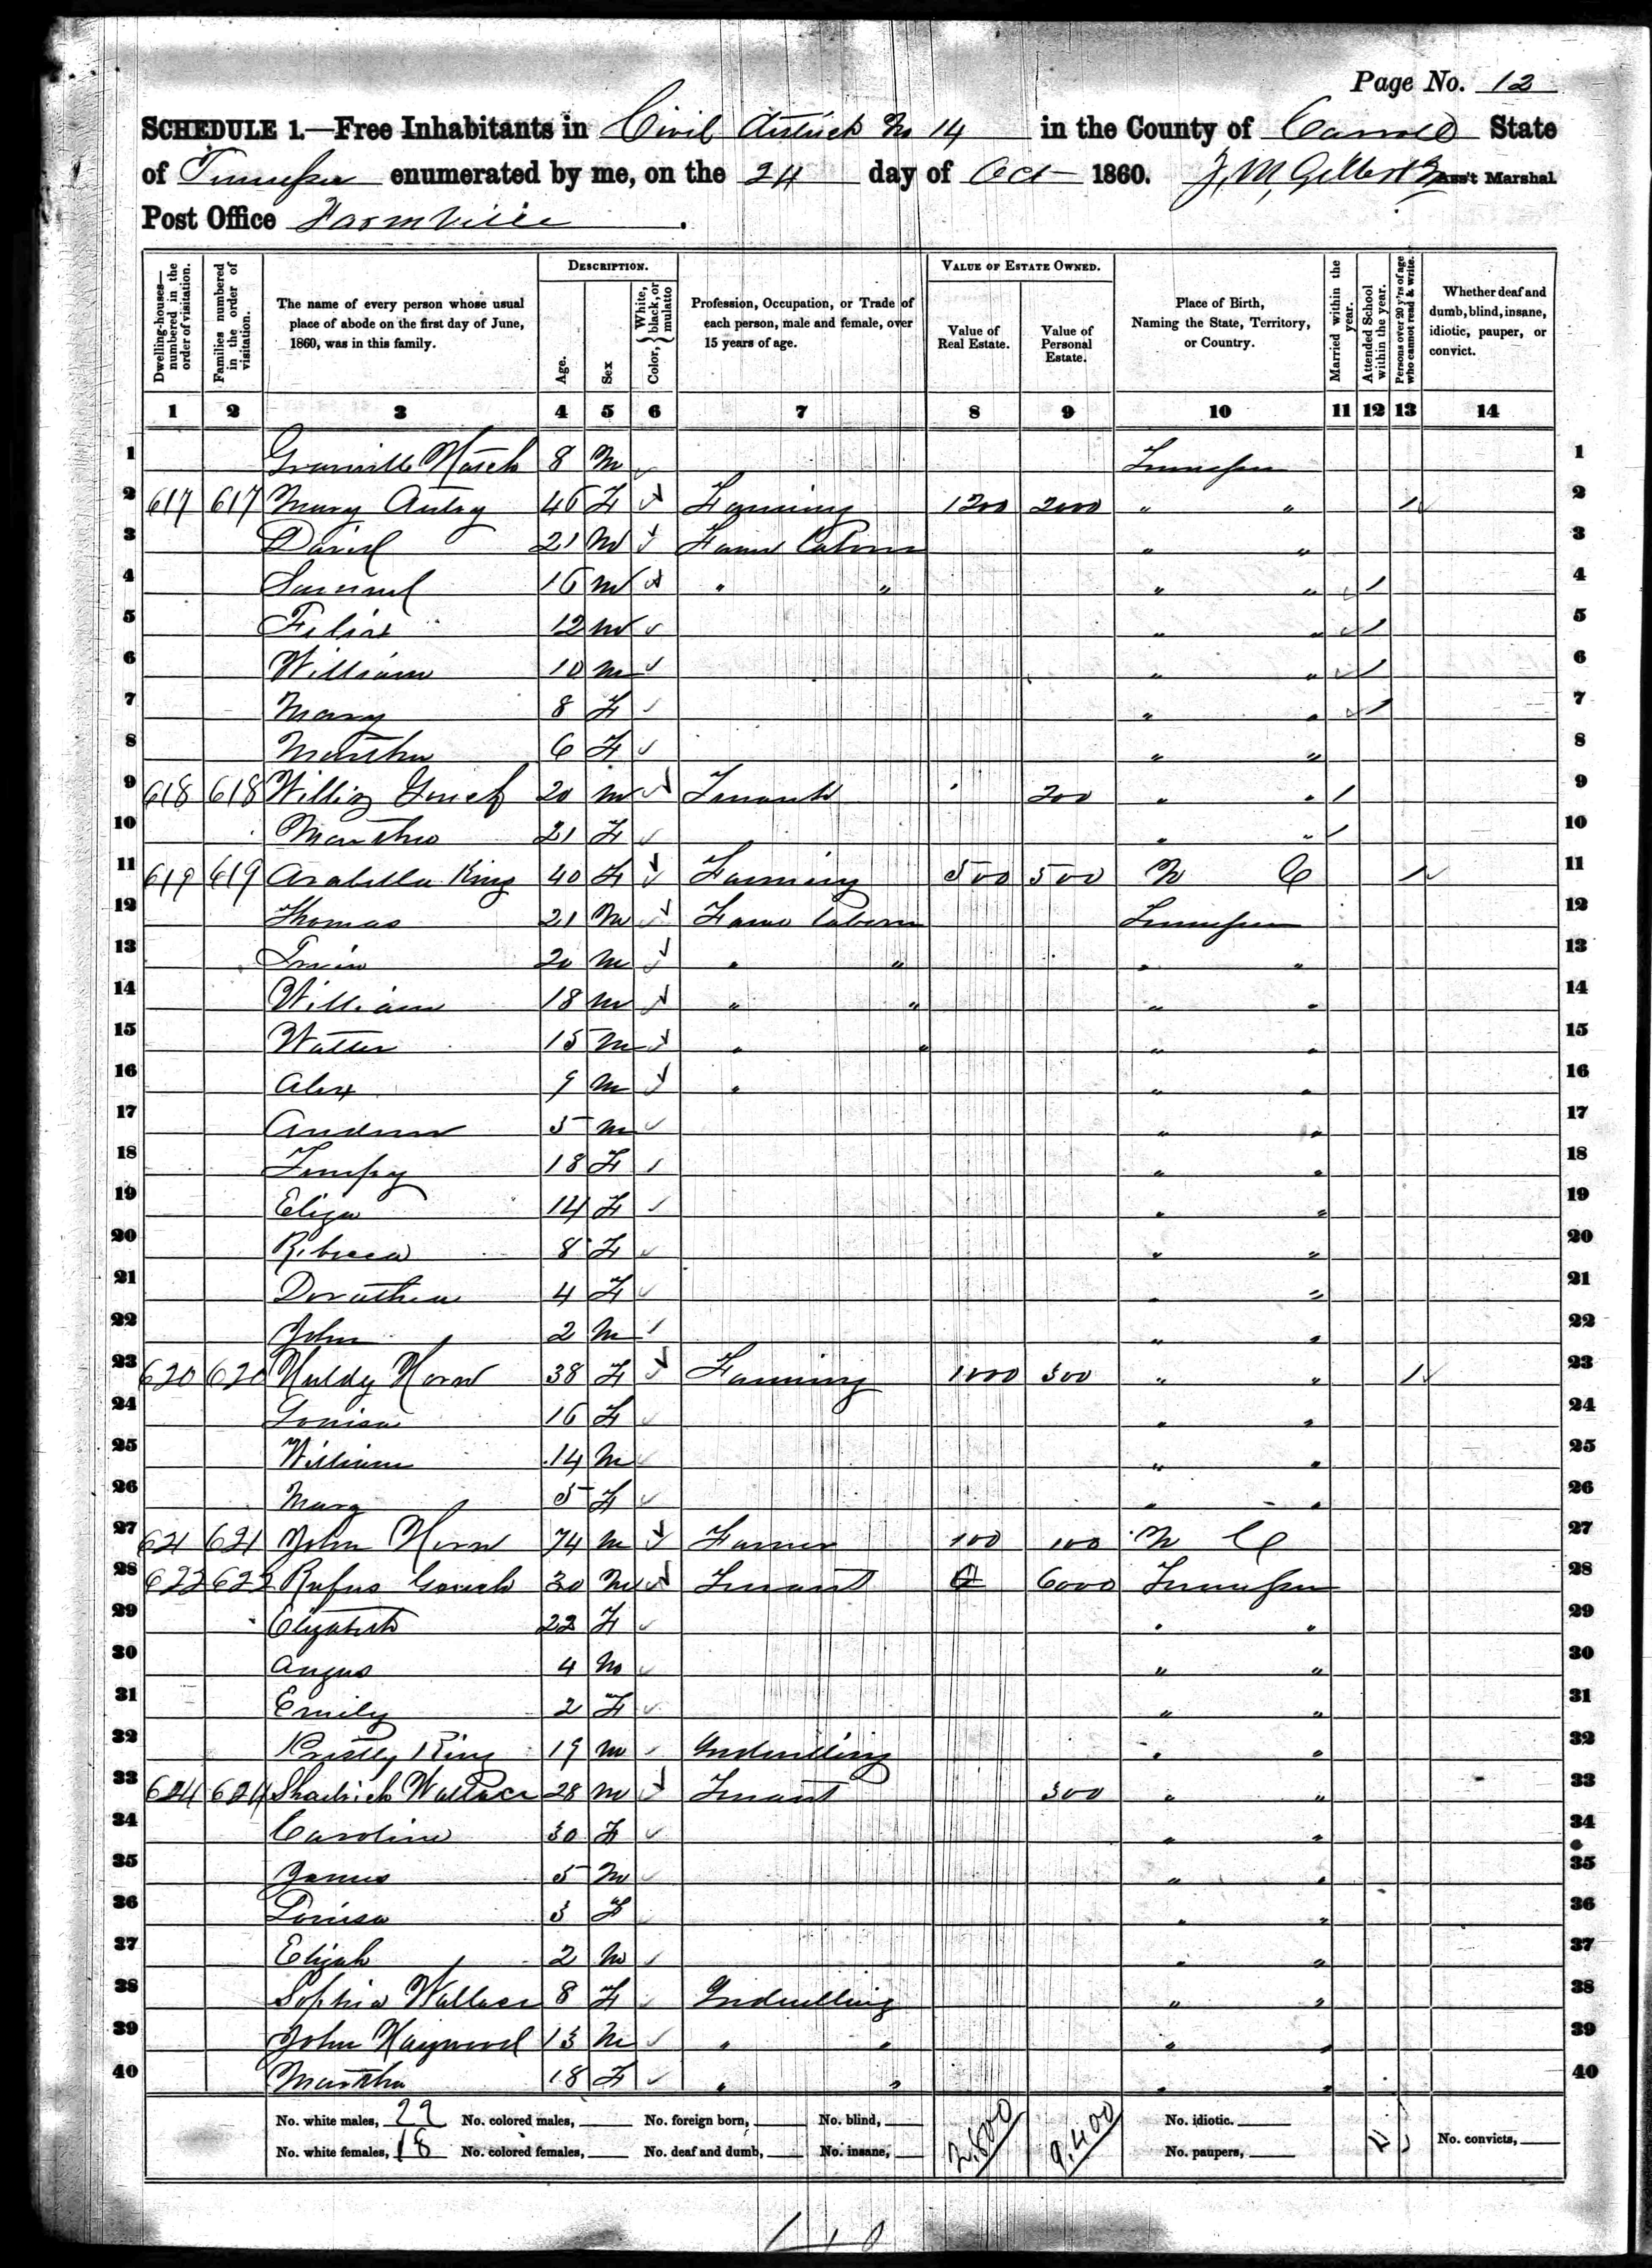 Page No. 12
SCHEDULE 1.—Free Inhabitants in Civil District No 14 in the County of Carroll State
of Tennessee enumerated by me, on the 24 day of Oct 1860. J. M. Gilbert Ass't Marshal.
Post Office Farmville.
Dwelling-houses—numbered in the order of visitation.
Families numbered in the order of visitation.
The name of every person whose usual place of abode on the first day of June, 1860, was in this family.
DESCRIPTION.
Age.
Sex
Color, White, black, or mulatto
Profession, Occupation, or Trade of each person, male and female, over 15 years of age.
VALUE OF ESTATE OWNED.
Value of Real Estate.
Value of Personal Estate.
Place of Birth, Naming the State, Territory, or Country.
Married within the year.
Attended School within the year.
Persons over 20 y'rs of age who cannot read & write.
Whether deaf and dumb, blind, insane, idiotic, pauper, or convict.
1 2 3 4 5 6 7 8 9 10 11 12 13 14
1 Granville 8 M Tennessee 1
2 617 617 Mary Autry 46 F Farming 1200 2000 " " / 2
3 David 21 M Farm Laborer " " 3
4 Samuel 16 M " " " " / 4
5 12 M " " / 5
6 William 10 M " " / 6
7 Mary 8 F " " / 7
8 Martha 6 F " " 8
9 618 618 20 M Tenant 200 " " / 9
10 Martha 21 F " " / 10
11 619 619 Arabella King 40 F Farming 500 500 N C / 11
12 Thomas 21 M Farm Laborer Tennessee 12
13 20 M " " " " 13
14 William 18 M " " " " 14
15 Walter 15 M " " " " 15
16 Alex 9 M " " " 16
17 Andrew 5 M " " 17
18 18 F " " 18
19 Eliza 14 F " " 19
20 Rebecca 8 F " " 20
21 Dorothea 4 F " " 21
22 John 2 M " " 22
23 620 620 Huldy Horn 38 F Farming 1000 300 " " / 23
24 Louisa 16 F " " 24
25 William 14 M " " 25
26 Mary 5 F " " 26
27 621 621 John Horn 74 M Farmer 100 100 N C 27
28 622 622 Rufus Gouch 30 M Tenant 6000 Tennessee 28
29 Elizabeth 22 F " " 29
30 Angus 4 M " " 30
31 Emily 2 F " " 31
32 King 19 M Indwelling " " 32
33 624 624 Shadrich Wallace 28 M Tenant 300 " " 33
34 Caroline 30 F " " 34
35 James 5 M " " 35
36 Louisa 3 F " " 36
37 Elijah 2 M " " 37
38 Sophia Wallace 8 F Indwelling " " 38
39 John Haywood 13 M " " " " 39
40 Martha 18 F " " " " 40
No. white males, 22 No. colored males, No. foreign born, No. blind, 2,800 9,400 No. idiotic.
No. white females, 18 No. colored females, No. deaf and dumb, No. insane, No. paupers, No. convicts,